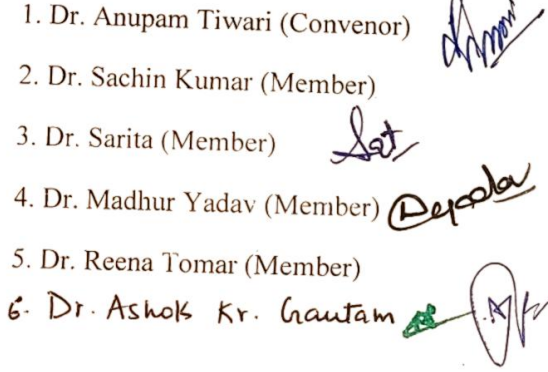 1. Dr. Anupam Tiwari (Convenor)
2. Dr. Sachin Kumar (Member)
3. Dr. Sarita (Member)
4. Dr. Madhur Yadav (Member)
5. Dr. Reena Tomar (Member)
6. Dr. Ashok Kr. Gautam